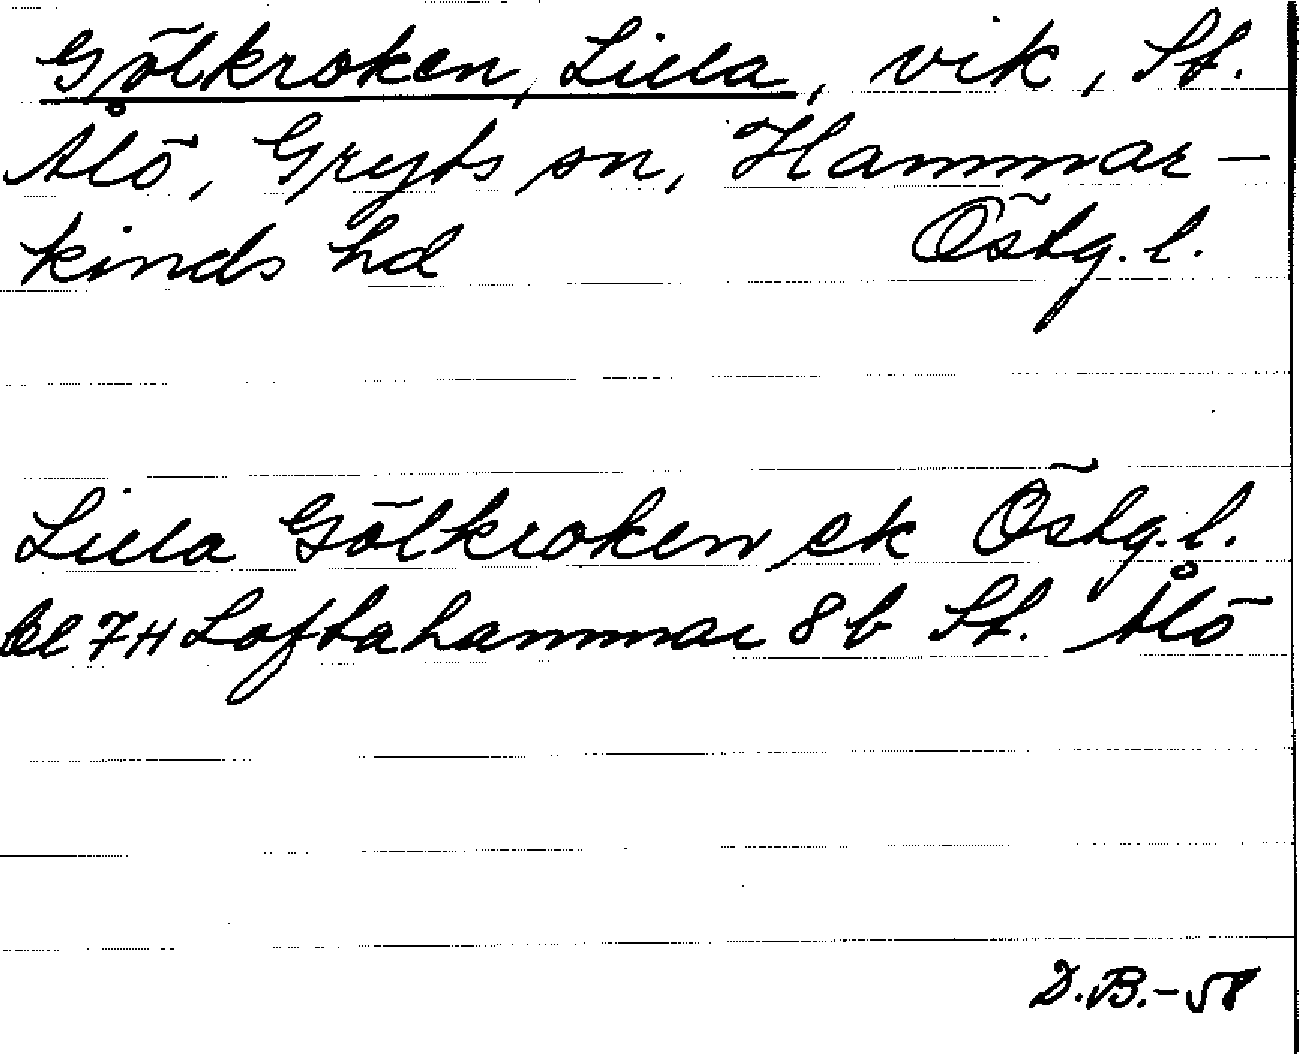 Gölkroken, Lilla, vik, St.
Ålö, Gryts sn, Hammar-
kinds hd Östg. l.
Lilla Gölkroken ek Östg. l.
bl 7H Loftahammar 8b St. Ålö
D.B.-58